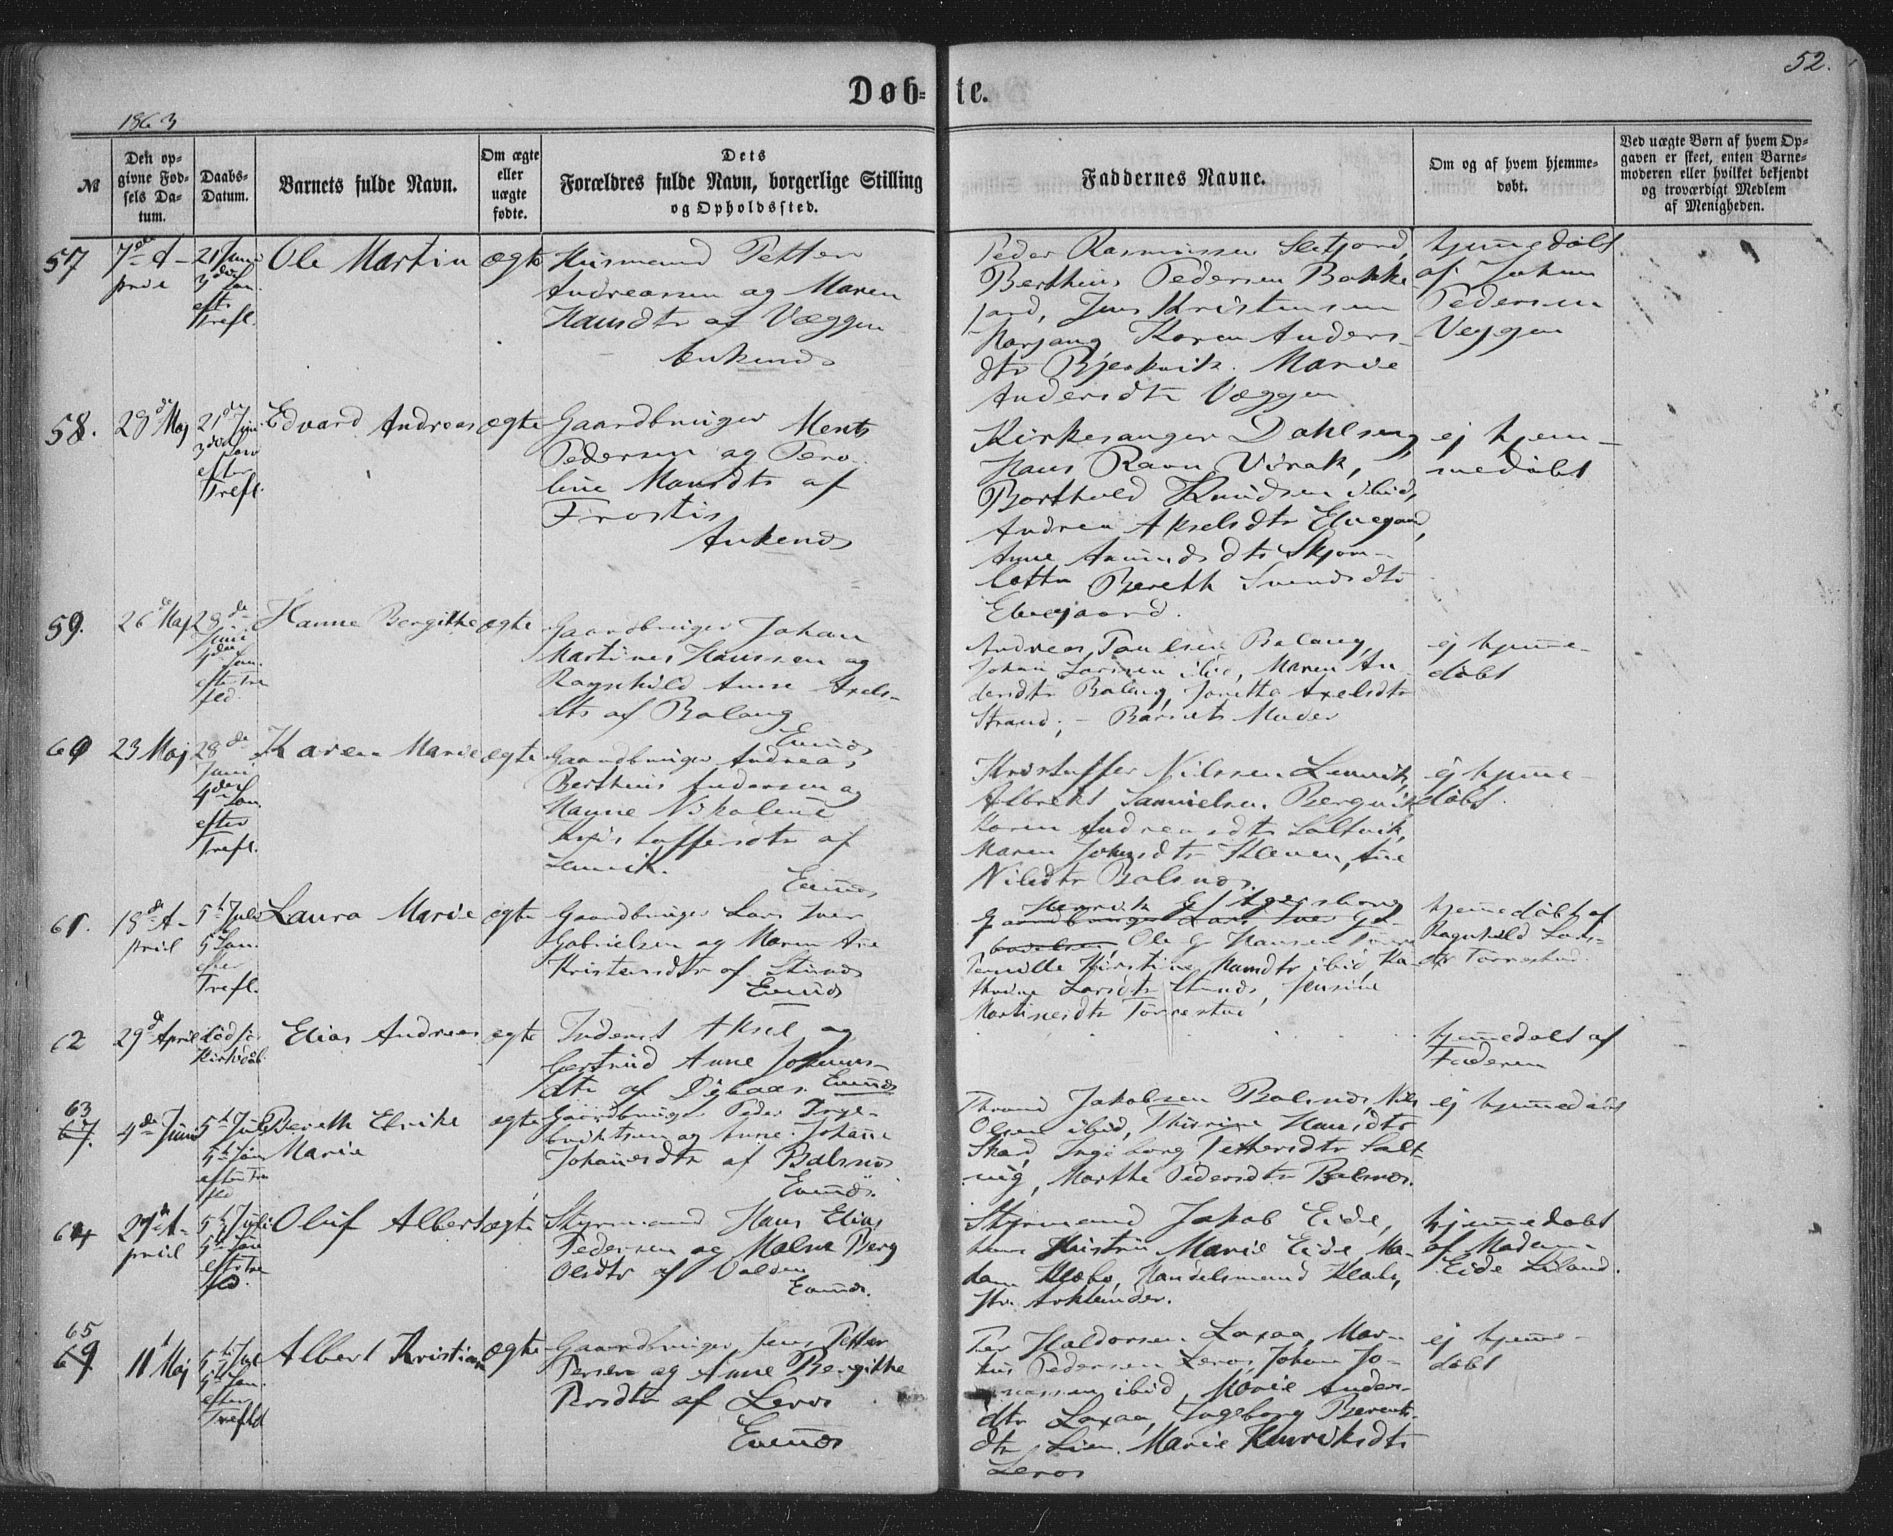 52.
Døb-te.
1863
№
Den op-
givne Fød-
sels Da-
tum.
Daabs-
Datum.
Barnets fulde Navn.
Om ægte
eller
uægte
fødte.
Dets
Forældres fulde Navn, borgerlige Stilling
og Opholdssted.
Faddernes Navne.
Om og af hvem hjemme-
døbt.
Ved uægte Børn af hvem Op-
gaven er skeet, enten Barne-
moderen eller hvilket bekjendt
og troværdigt Medlem
af Menigheden.
57
7de A-
pril
21 Juni
3die Søn.
eft.
Trefl.
Ole Martin
ægte
Husmand Petter
Andreassen og Maren
Hansdtr af Væggen
Ankenes
Peder Rasmussen
Berthius Pedersen Bakke
jord, Jens Kristensen
Karen Anders-
dtr Bjerkvik. Marie
Andersdtr Væggen
hjemmedøbt
af Johan
Pedersen
Veggen
58.
29de Maj
21de Juni
3die Søn
efter
Trefl.
Edvard Andreas
ægte
Gaardbruger Ments
Pedersen og Pero-
line Monsdtr af
Frostis
Ankenes
Kirkesanger Dahlseng,
Hans Ravn Virak,
Berthold Knudsen ibid,
Andrea Akselsdtr Elvegaard,
Anne Amundsdtr Skjom-
botn Bereth Svendsdtr
Elvegaard.
ej hjem-
medøbt
59.
26de Maj
28de
Juni
4de
Søn.
efter Tre
fld.
Hanne Bergitthe
ægte
Gaardbruger Johan
Martines Hanssen og
Ragnhild Anne Axels-
dtr af Balang
Evenes
Andreas Paulsen Balang,
Johan Larssen ibid, Maren An-
dersdtr Balang, Janetta Axelsdtr
Strand, - Barnets Moder
ej hjemme-
døbt
60
23 Maj
28de
Juni
4de Søn
efter
Trefl.
Karen Marie
ægte
Gaardbruger Andreas
Berthius Andersen og
Hanne Nikoline
Kristoffersdtr af
Lenvik.
Evenes
Kristoffer Nilssen Lenvik,
Albrekt Samuelsen Bergvik
Karen Andreasdtr Saltvik,
Maren Johnsdtr Kleven, Ane
Nilsdtr Balsnes.
ej hjemme-
døbt.
61.
18de A-
pril
5te Juli
5 Søn.
efter
Trefl.
Laura Marie
ægte
Gaardbruger Lars Iver
Gabrielsen og Maren Ane
Kristensdtr af
Evenes
Henrik
Gaardbruger Lars Iver Ga-
brielsen, Ole G Hansen
Pernille Kirstine Hansdtr ibid, Ka-
thrine Larsdtr, Jensine
Martinesdtr Tørrestad
hjemmedøbt af
Ragnhild Lars-
dtr Tørrestad.
62
29de April
død før
Kirkedåb
Elias Andreas
ægte
Inderst Aksel og
Gertrud Anne Johans-
dtr af Evenes
hjemmedøbt af
Faderen
63
67.
4de Juni
5te Juli
5te Søn
efter Tre
fld
Bereth Elrike
Marie
ægte
Gaardbruger Peder Inge-
briktsen og Anne Johanne
Johannesdtr af Balsnes
Evenes.
Thrond Jakobsen Balsnes, Nils
Olsen ibid, Thrine Hansdtr
Skard, Ingeborg Pettersdtr Salt-
vig, Marthe Pedersdtr Balsnes.
ej hjemmedøbt
64
27de A-
pril
5te Juli
5te Søn
efter Tre
fld.
Oluf Albert
ægte
Styrmand Hans Elias
Pedersen og Malene Berg
Olsdtr af
Evenes.
Styrmand Jakob Eide,
hans Hustru Marie Eide, Ma-
dam Klæbo, Handelsmand Klæbo,
hjemmedøbt
af Madam
Eide Liland.
65
69
11te Maj
5te Juli
5te Søn.
efter
Trefld
Albert Kristian
ægte
Gaardbruger Jens Petter
Persen og Anne Bergitthe
Persdtr af Leros
Evenes
Per Haldorsen Laxaa, Mar-
kus Pedersen Leros, Johan Jo-
hanssen ibid, Marie Anders-
dtr Laxaa, Ingeborg Berents-
dtr Lien. Marie Henriksdtr
Leros
ej hjemme-
døbt